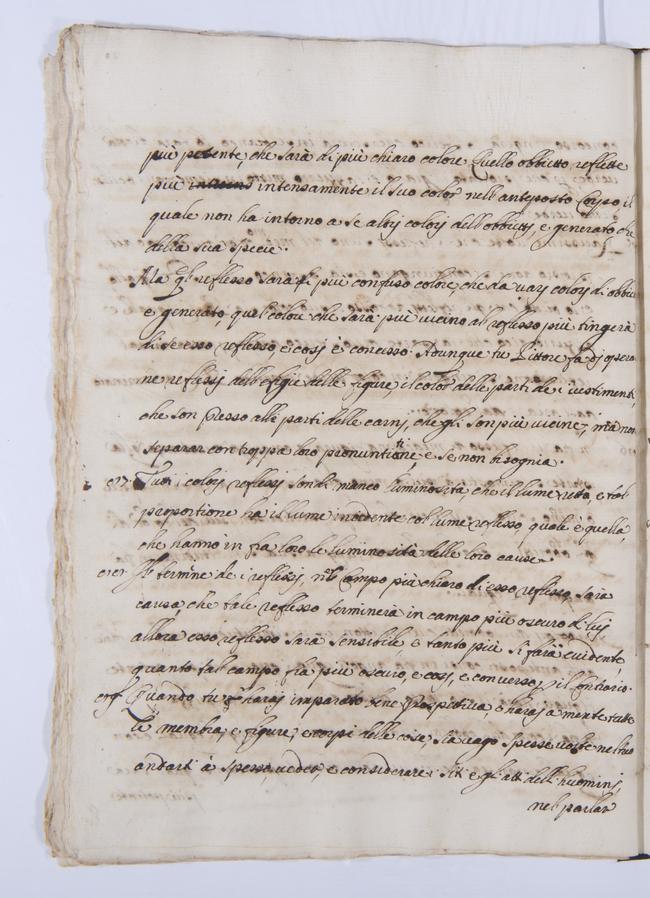 più potente, che sarà di più chiaro colore. Quello obbietto reflette
più intensamente il suo color nell'anteposto Corpo, il
quale non ha intorno a se altrij colorj dell'obbiettj, e generato che
della sua specie.
Ma q.l reflesso sarà di più confuso colore, che da varj colorj di obbiet
e generato, quel colore che sarà più vicino al reflesso più tingerà
di se esso reflesso, e cosj è converso. Adunque tu Pittore fa dj opera
ne, reflessj dell'efigie delle figure, il color delle parti de i vestimenti,
che son presso alle parti delle carnj, che gli son più vicine, ma non
separar con troppa loro pronuntiatione se non bisognia.
Tuti i colorj reflessj son di manco luminosità che il lume retto, e tal
proportione ha il lume incidente col lume reflesso, quale è quella,
che hanno in fra loro le luminosità delle loro cause.
termine de i reflessj, nel Campo più chiaro di esso reflesso, sara
causa, che tale reflesso terminerà in campo più oscuro di luj
allora esso reflesso sarà sensibile e tanto più si farà evidente,
quanto tal campo fia più oscuro, e cosj, e converso, il contrario.
Quando tu harai imparato bene Prospittiva, e haraj a mente tutte
le membra, e figure, e corpi delle cose, sia vago spesse volte nel tuo
andarti à spasso, veder, e considerare i siti e gli atti dell'huominj,
nel parlar